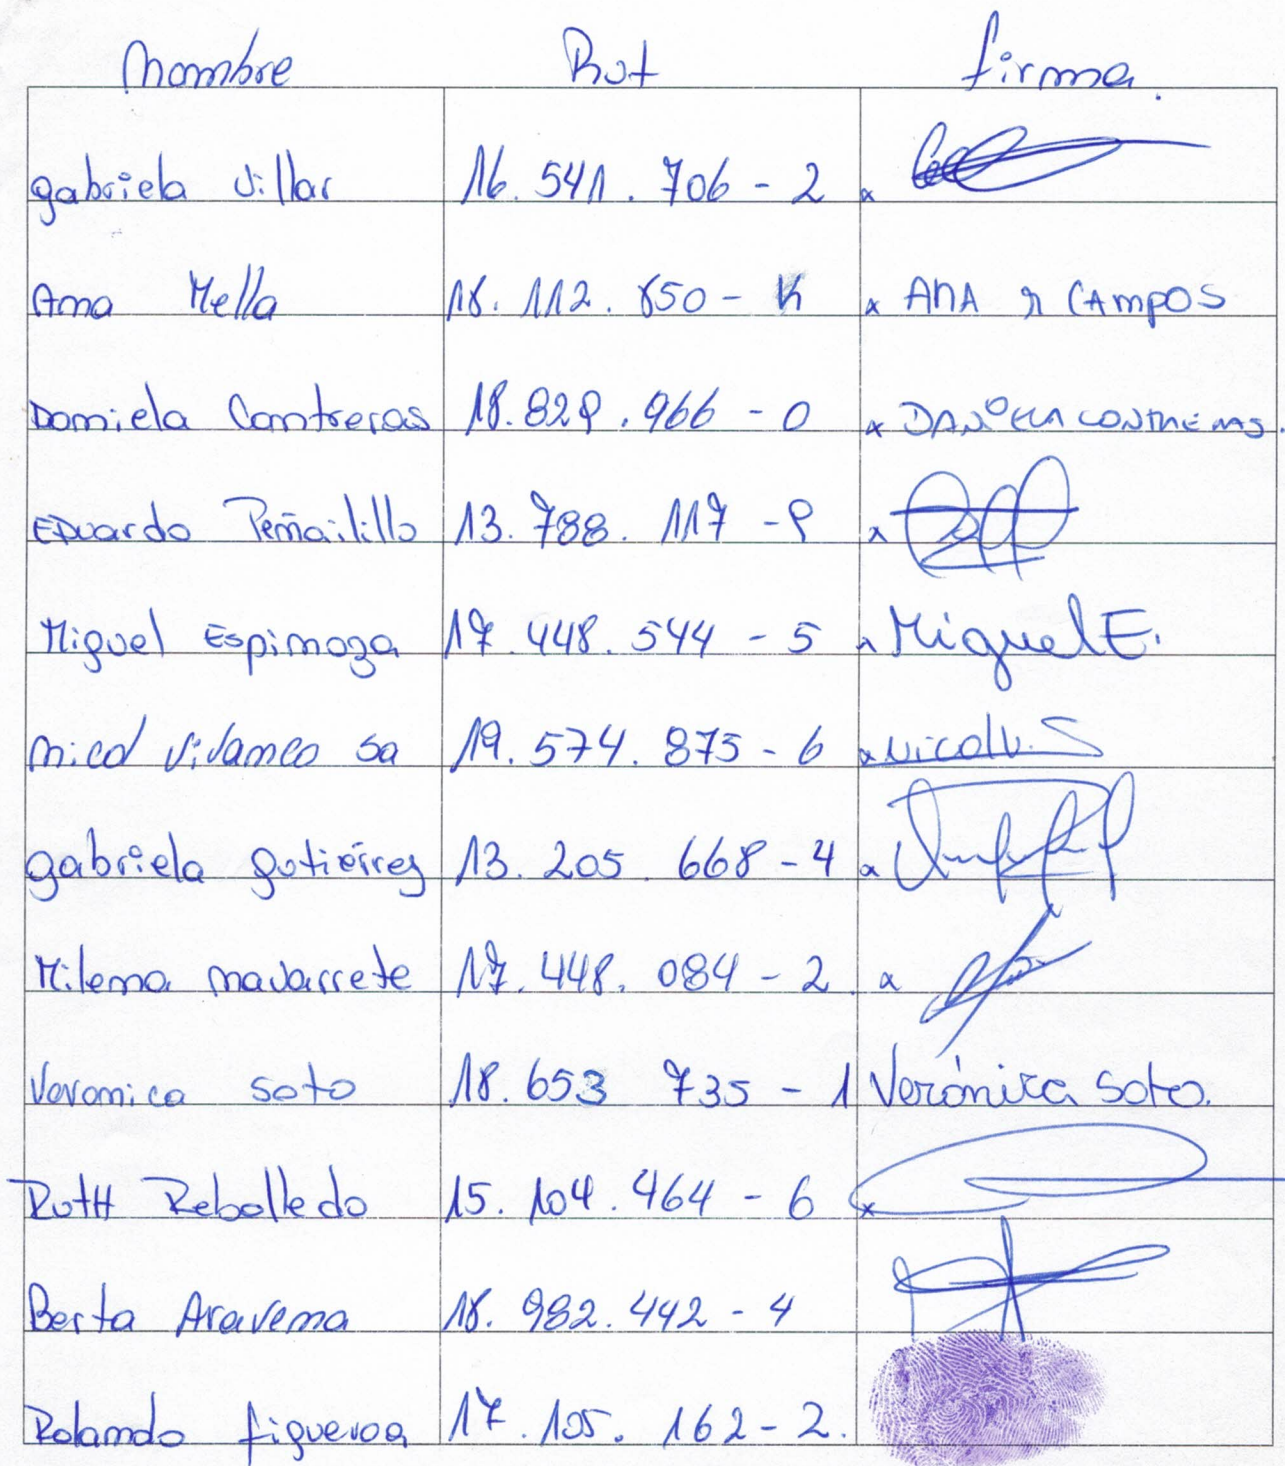 Nombre Rut firma.
gabriela Villar 16.541.706-2 x
Ana Mella 18.112.850-K x ANA R CAMPOS
Daniela Contreras 18.829.966-0 x DANIELA CONTRERAS.
EDuardo Peñailillo 13.788.117-9 x
Miguel Espinoza 17.448.544-5 x Miguel E.
nicol Vivanco sa 19.574.875-6 x Nicol V. S
gabriela gutiérrez 13.205.668-4 x
Milena navarrete 17.448.084-2 x
Veronica soto 18.653 735-1 Verónica Soto.
RutH Rebolledo 15.104.464-6 x
Berta Aravena 18.982.442-4
Rolando figueroa 17.105.162-2.